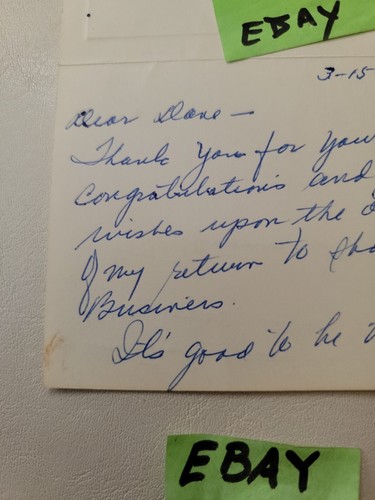 EBAY
3-15
Dear Dave —
Thank you for your
congratulations and
wishes upon the
of my return to Sho
Business.
It's good to be
EBAY